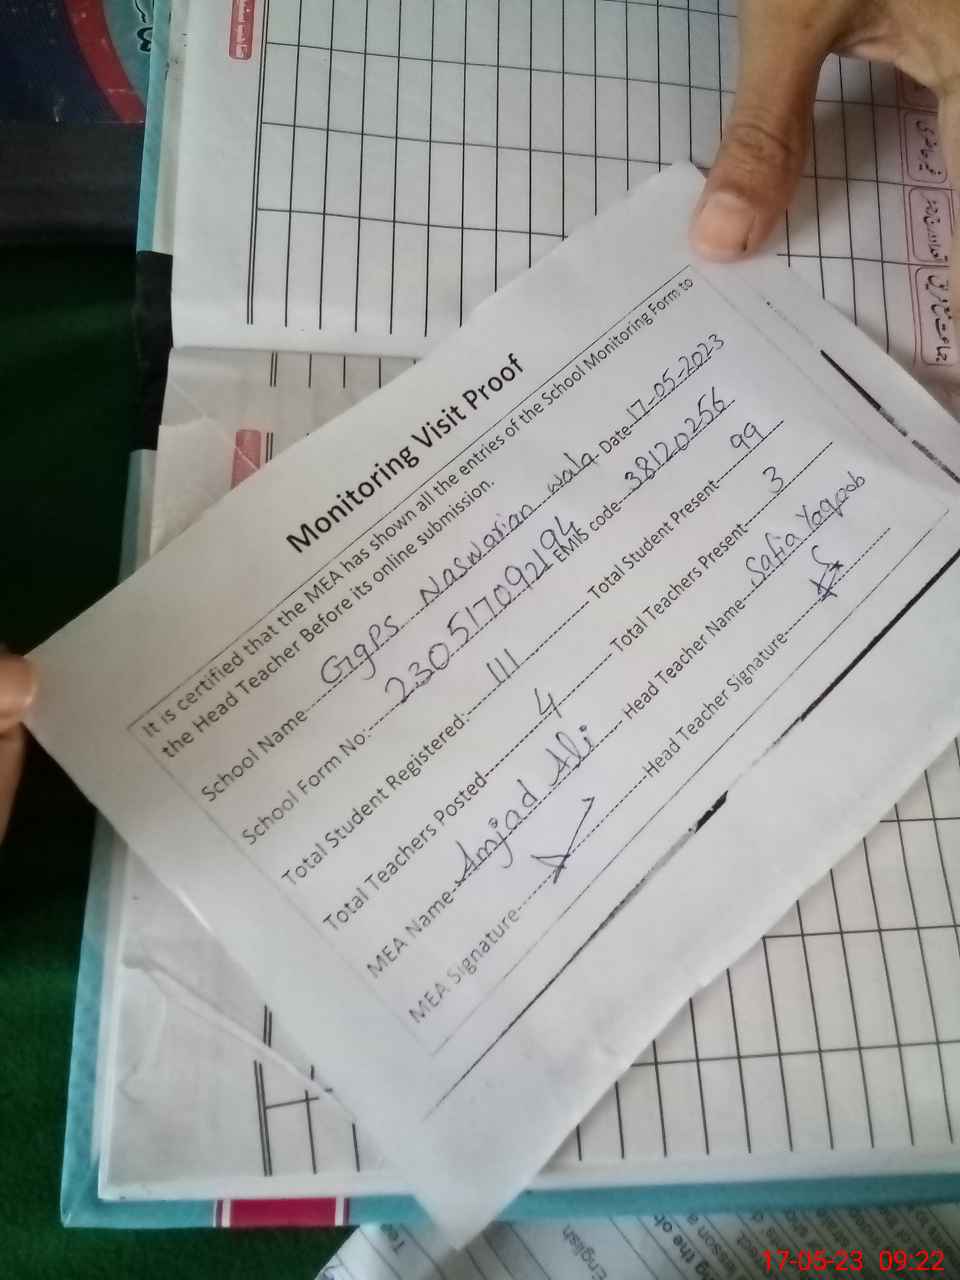 Monitoring Visit Proof
It is certified that the MEA has shown all the entries of the School Monitoring Form to
the Head Teacher Before its online submission.
School Name GgPS Naswarian wala Date 17-05-2023
School Form No: 230517092194 EMIS code 38120256
Total Student Registered: 111 Total Student Present 99
Total Teachers Posted 4 Total Teachers Present 3
MEA Name Amjad Ali Head Teacher Name Safia Yaqoob
MEA Signature Head Teacher Signature
English
17-05-23 09:22